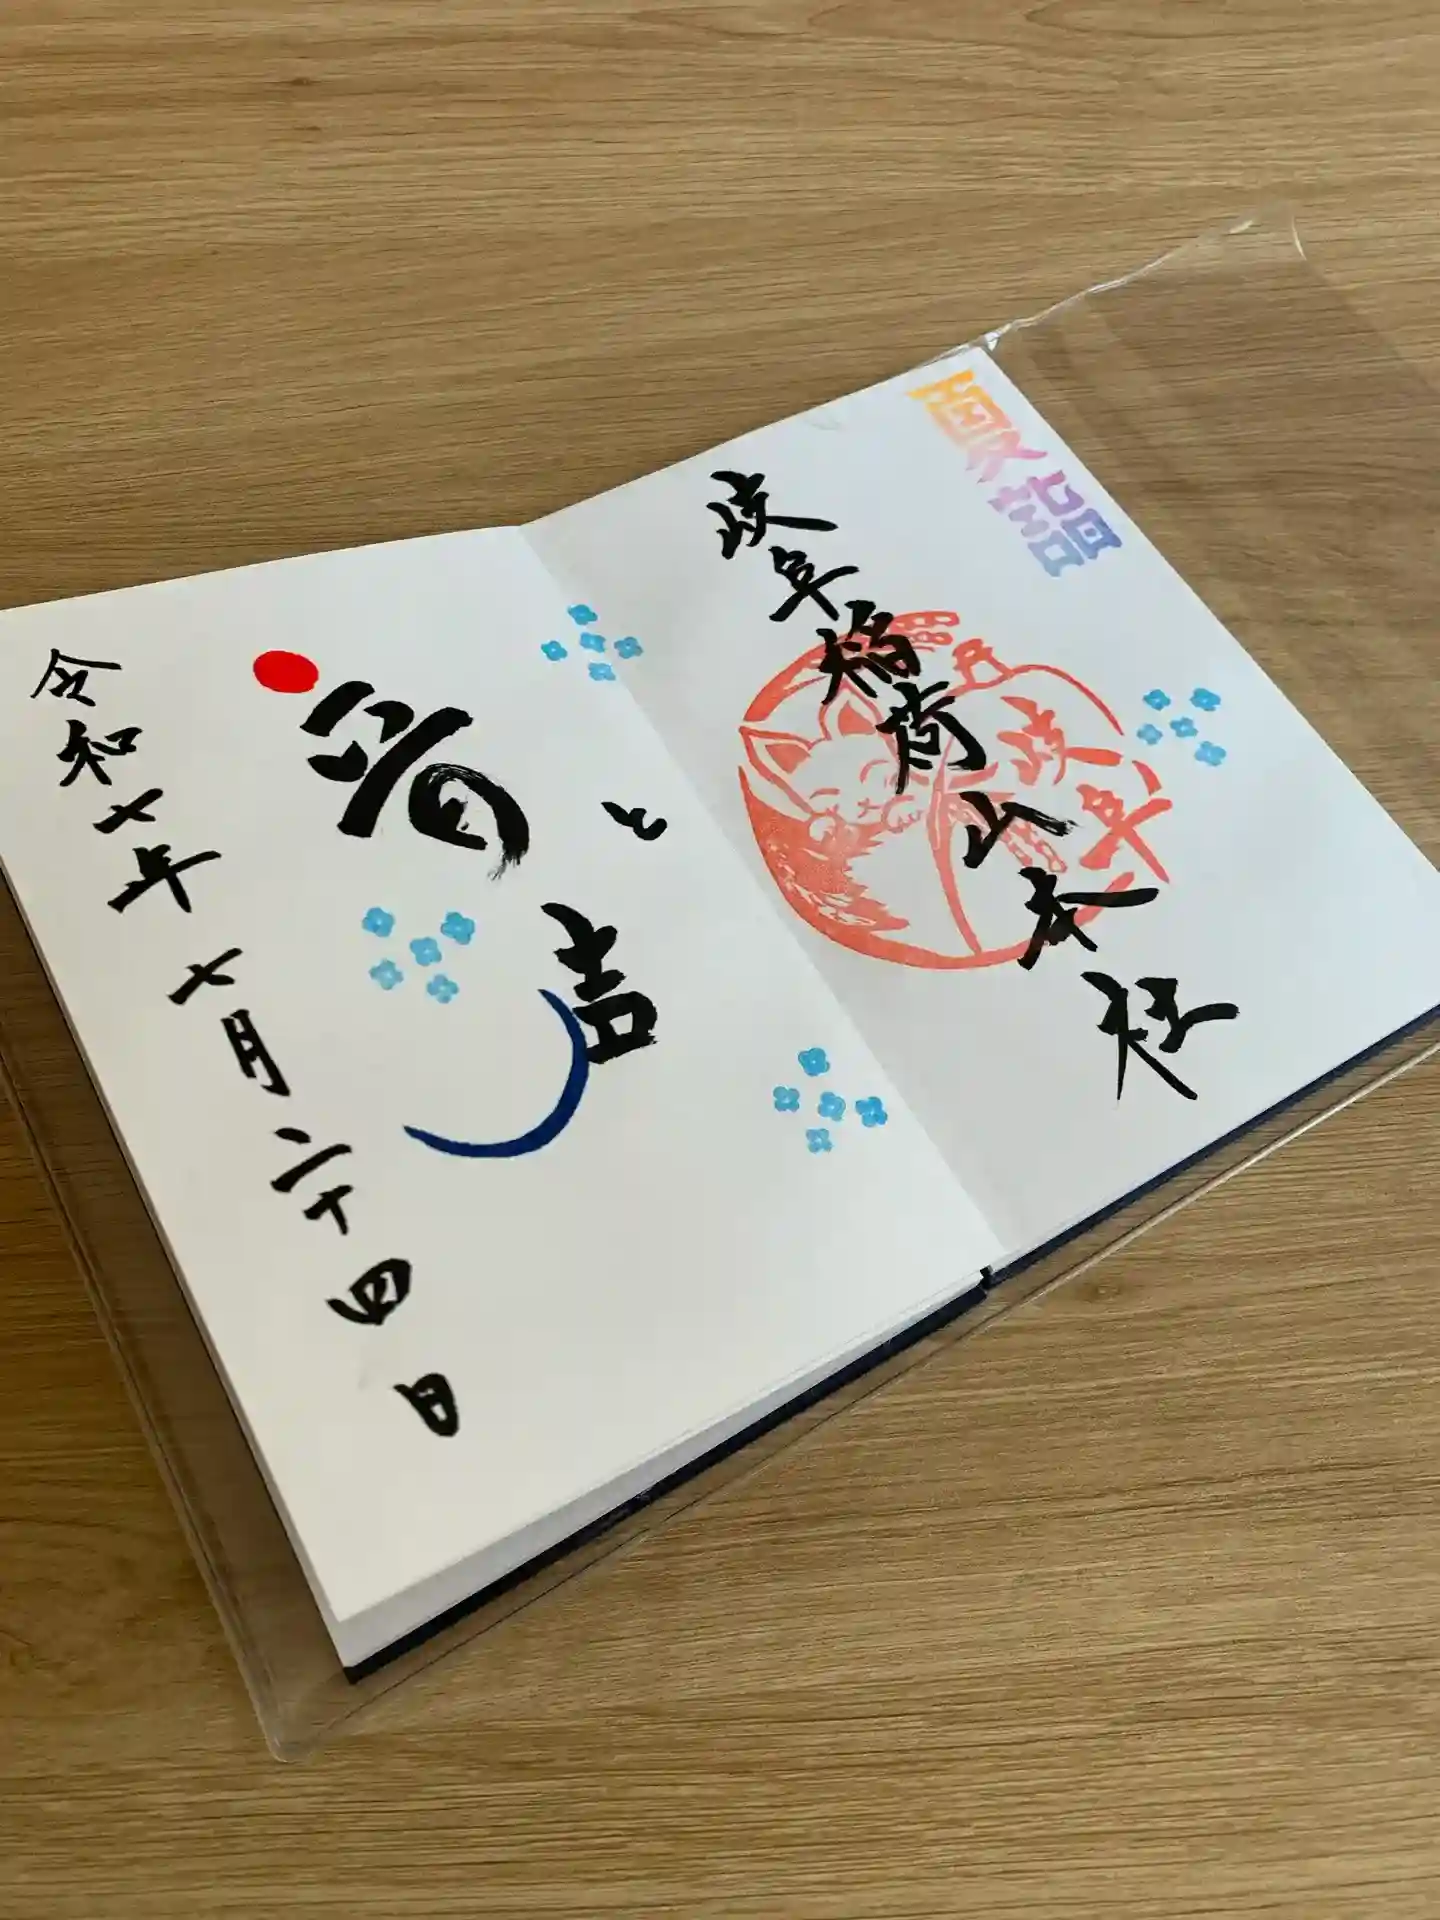 夏詣
岐阜稲荷山本社
岐阜
と
令和七年七月二十四日